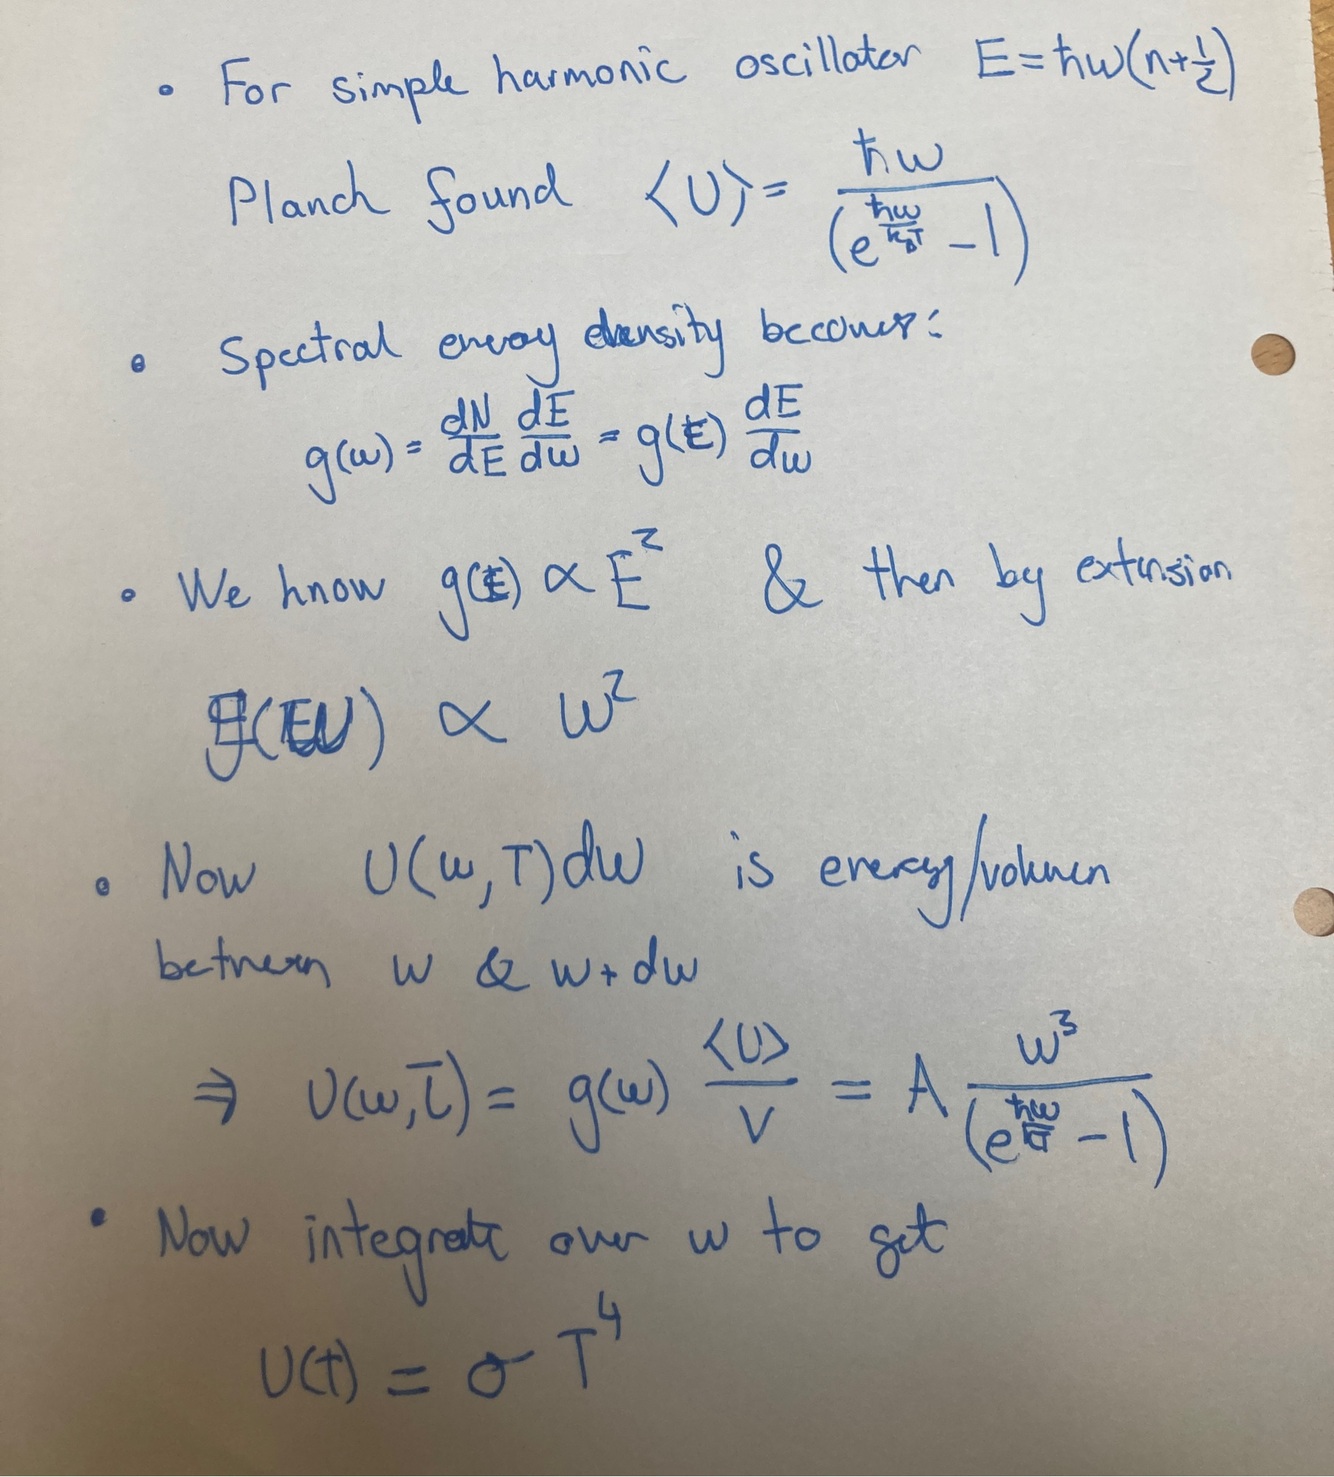 • For simple harmonic oscillator E = ħω(n+½)
Planck found ⟨U⟩ = ħω / (e^(ħω/k_BT) - 1)
• Spectral energy density becomes:
g(ω) = dN/dE dE/dω = g(E) dE/dω
• We know g(E) ∝ E² & then by extension
g(ω) ∝ ω²
• Now U(ω,T)dω is energy/volumen
between ω & ω + dω
⇒ U(ω,T) = g(ω) ⟨U⟩/V = A ω³ / (e^(ħω/kT) - 1)
• Now integrate over ω to get
U(T) = σ T⁴